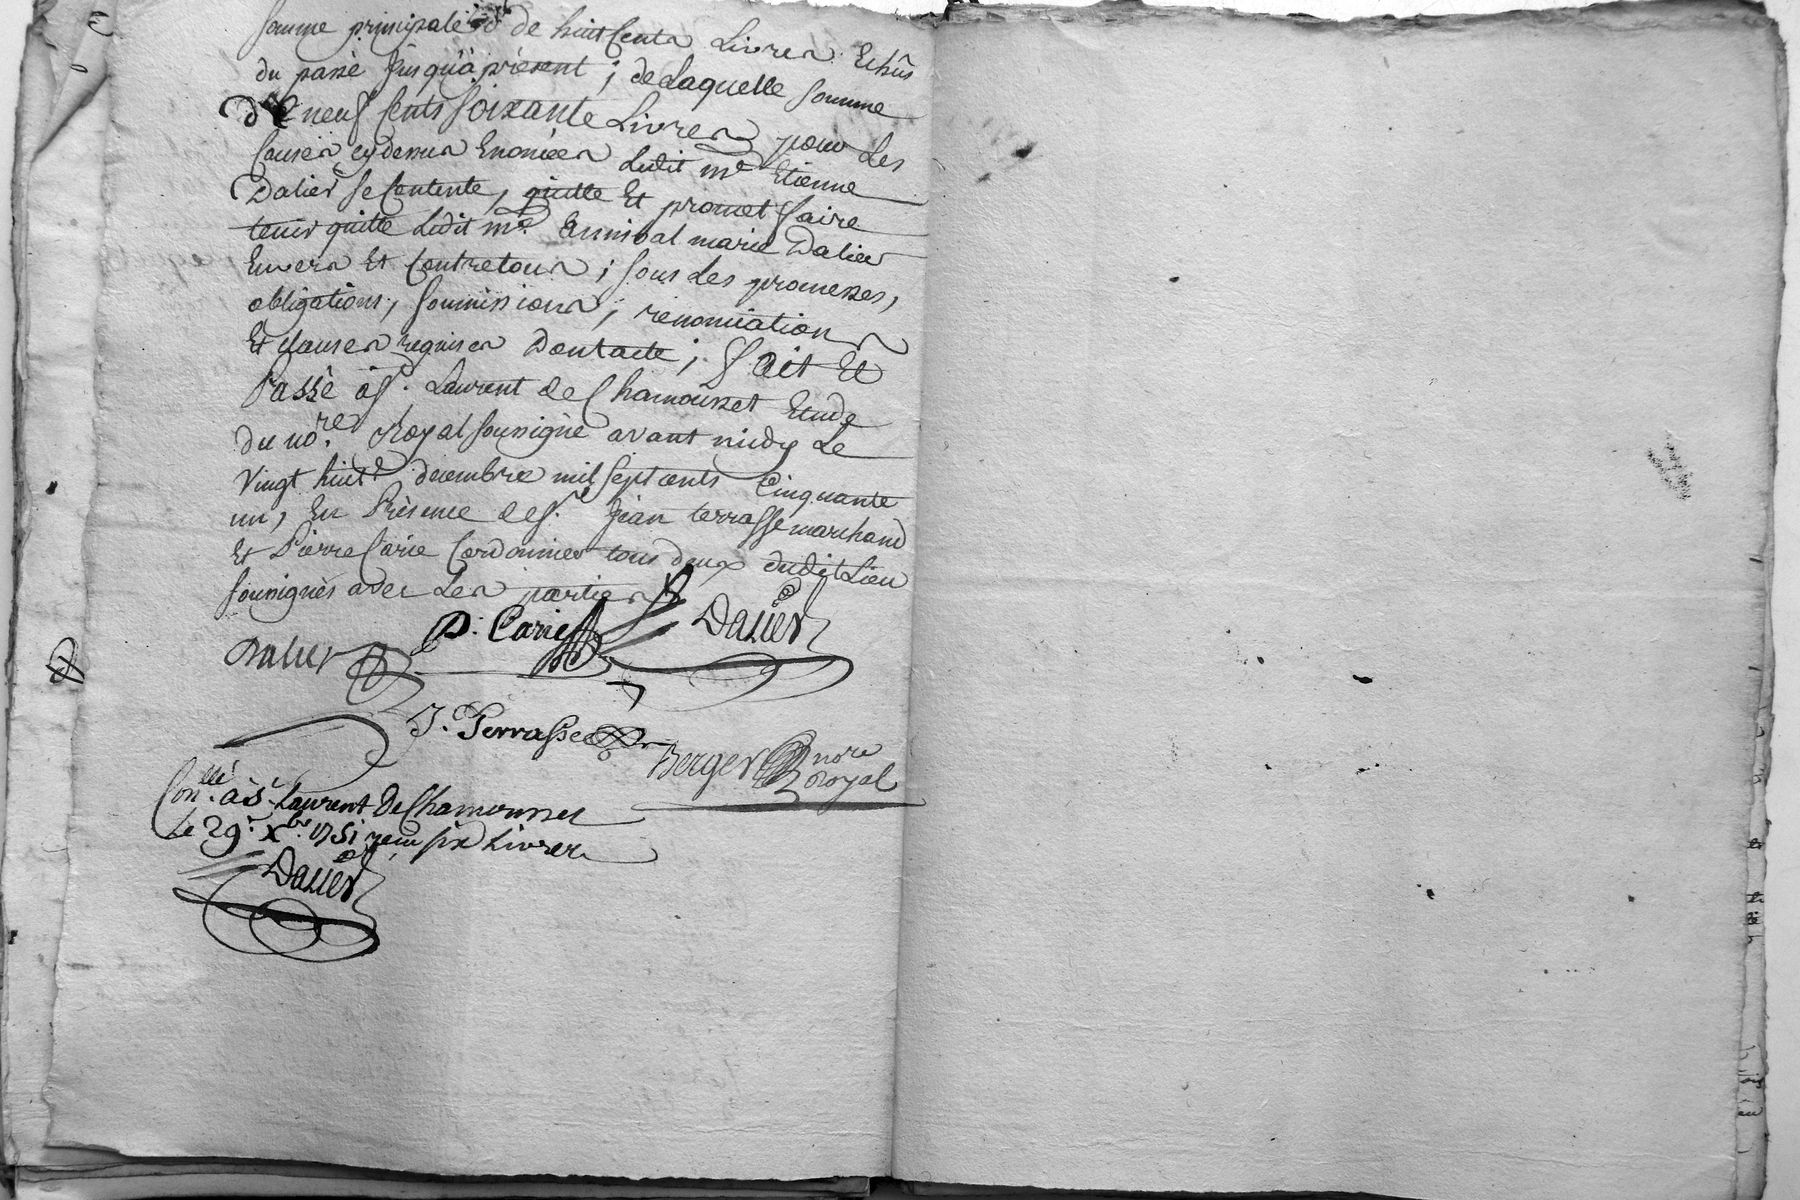 somme principale de huit cents Livres Echûs
du passè jusqu'à prèsent ; de Laquelle somme
De neuf cents soixante Livres pour Les
Causes cy dessus Enoncèes Ledit me Etienne
Dalier se Contente, quitte Et promet faire
tenir quitte Ledit me. annibal marie Dalier
Envers Et Contre tous ; sous Les promesses,
obligations, soumissions, renonciations
Et clauses requises Dont acte ; fait Et
Passè à St. Laurent de Chamousset Etude
du nore. Royal soussignè avant midy Le
Vingt huite decembre mil sept cents Cinquante
un, En Prèsence de sr. jean terrasse marchand
Et Pierre Carie Cordonnier tous deux dudit Lieu
soussignès avec Les parties
P. Carie Dalier
Dalier
J. Terrasse
Berger nore
Royal
Conllé. à St. Laurent De Chamousset
Le 29e. Xbre. 1751 reçu six Livres
Dalier